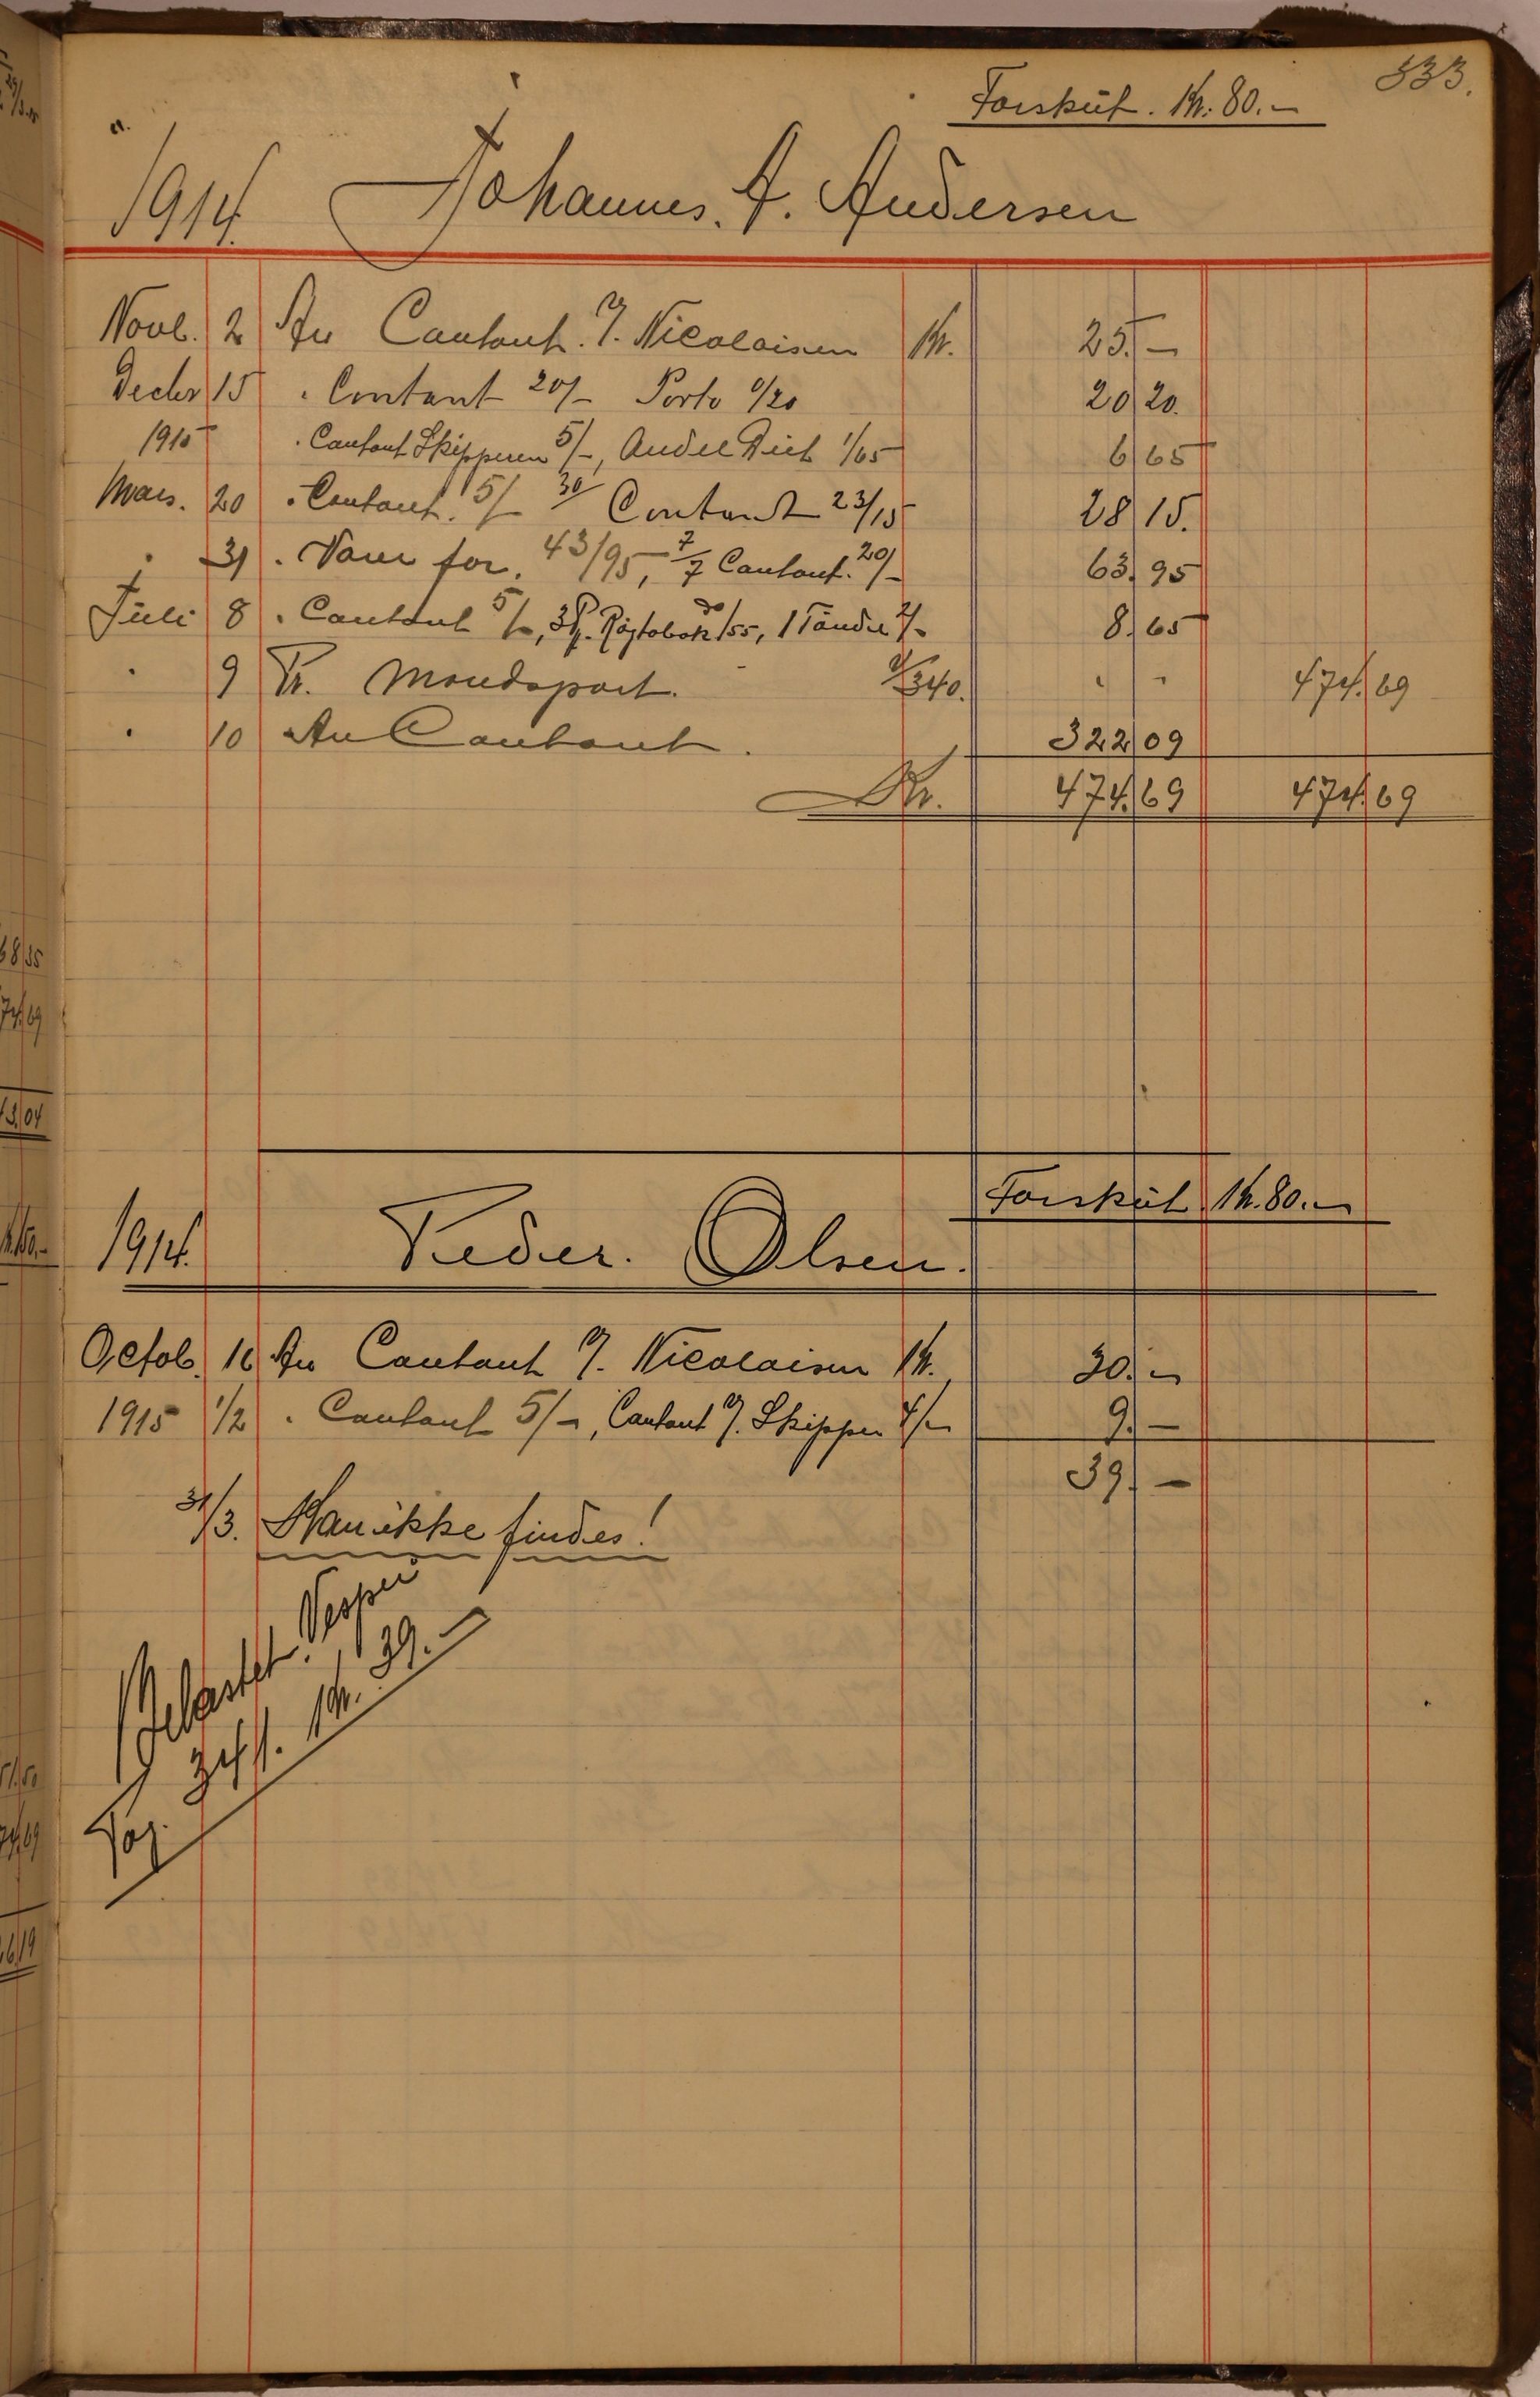 333.
Forsküt. Kr. 80.-
1914. Johannes. A. Andersen
Novb. 2 An Contant. J. Nicolaisen Kr. 25.-
Decbr 15 . Contant 20/- Porto 0/20 20 20.
1915 . Contant Skipperen 5/-, Andel 1/65 6 65
Mars. 20 . Contant. 5/- 30/ Contant 23/15 28 15.
. 31 . Varer for. 43/95, 7/7 Contant. 20/- 63. 95
Juli 8 . Contant 5/-, 3 P. Røgtobak /55, 1 2/- 8. 65
. 9 Pr. Mandspart. 1/340. " " 474. 69
. 10 An Contant. 322 09
Kr. 474. 69 474. 69
Forsküt Kr. 80.-
1914. Peder. Olsen.
Octob. 16 An Contant J. Nicolaisen Kr. 30.-
1915 1/2 . Contant 5/-, Contant J. Skipper 4/- 9.-
39.-
31/3. Kan ikke findes!
Belastet. Vesper
Pag. 341. Kr. 39.-
68 35
74 69